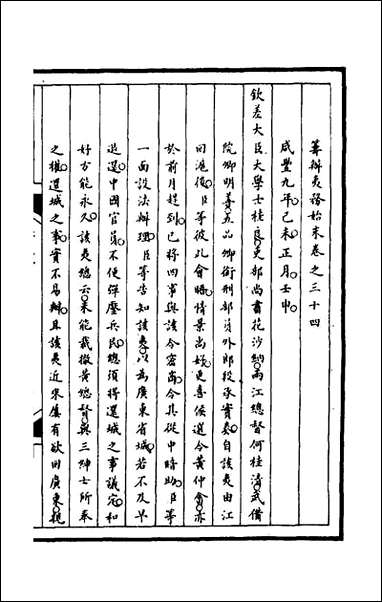 籌辦夷務始末卷之三十四
咸豐九年己未正月壬申
欽差大臣大學士桂良吏部尚書花沙納兩江總督何桂清武備
院卿明善五品卿銜刑部員外郎段承實奏自該夷由江
回滬復臣等彼此會晤情景尚好更喜候選令黃仲畬亦
於前月趕到已將四事與該令密商令其從中暗助臣等
一面設法辦理臣等告知該夷以為廣東省城若不及早
退還中國官員不便彈壓兵民總須將還城之事議定和
好方能永久該夷總云未能裁撤黃總督與三紳士所奉
之權還城之事實不易辦且該夷近來屢有欲回廣東親